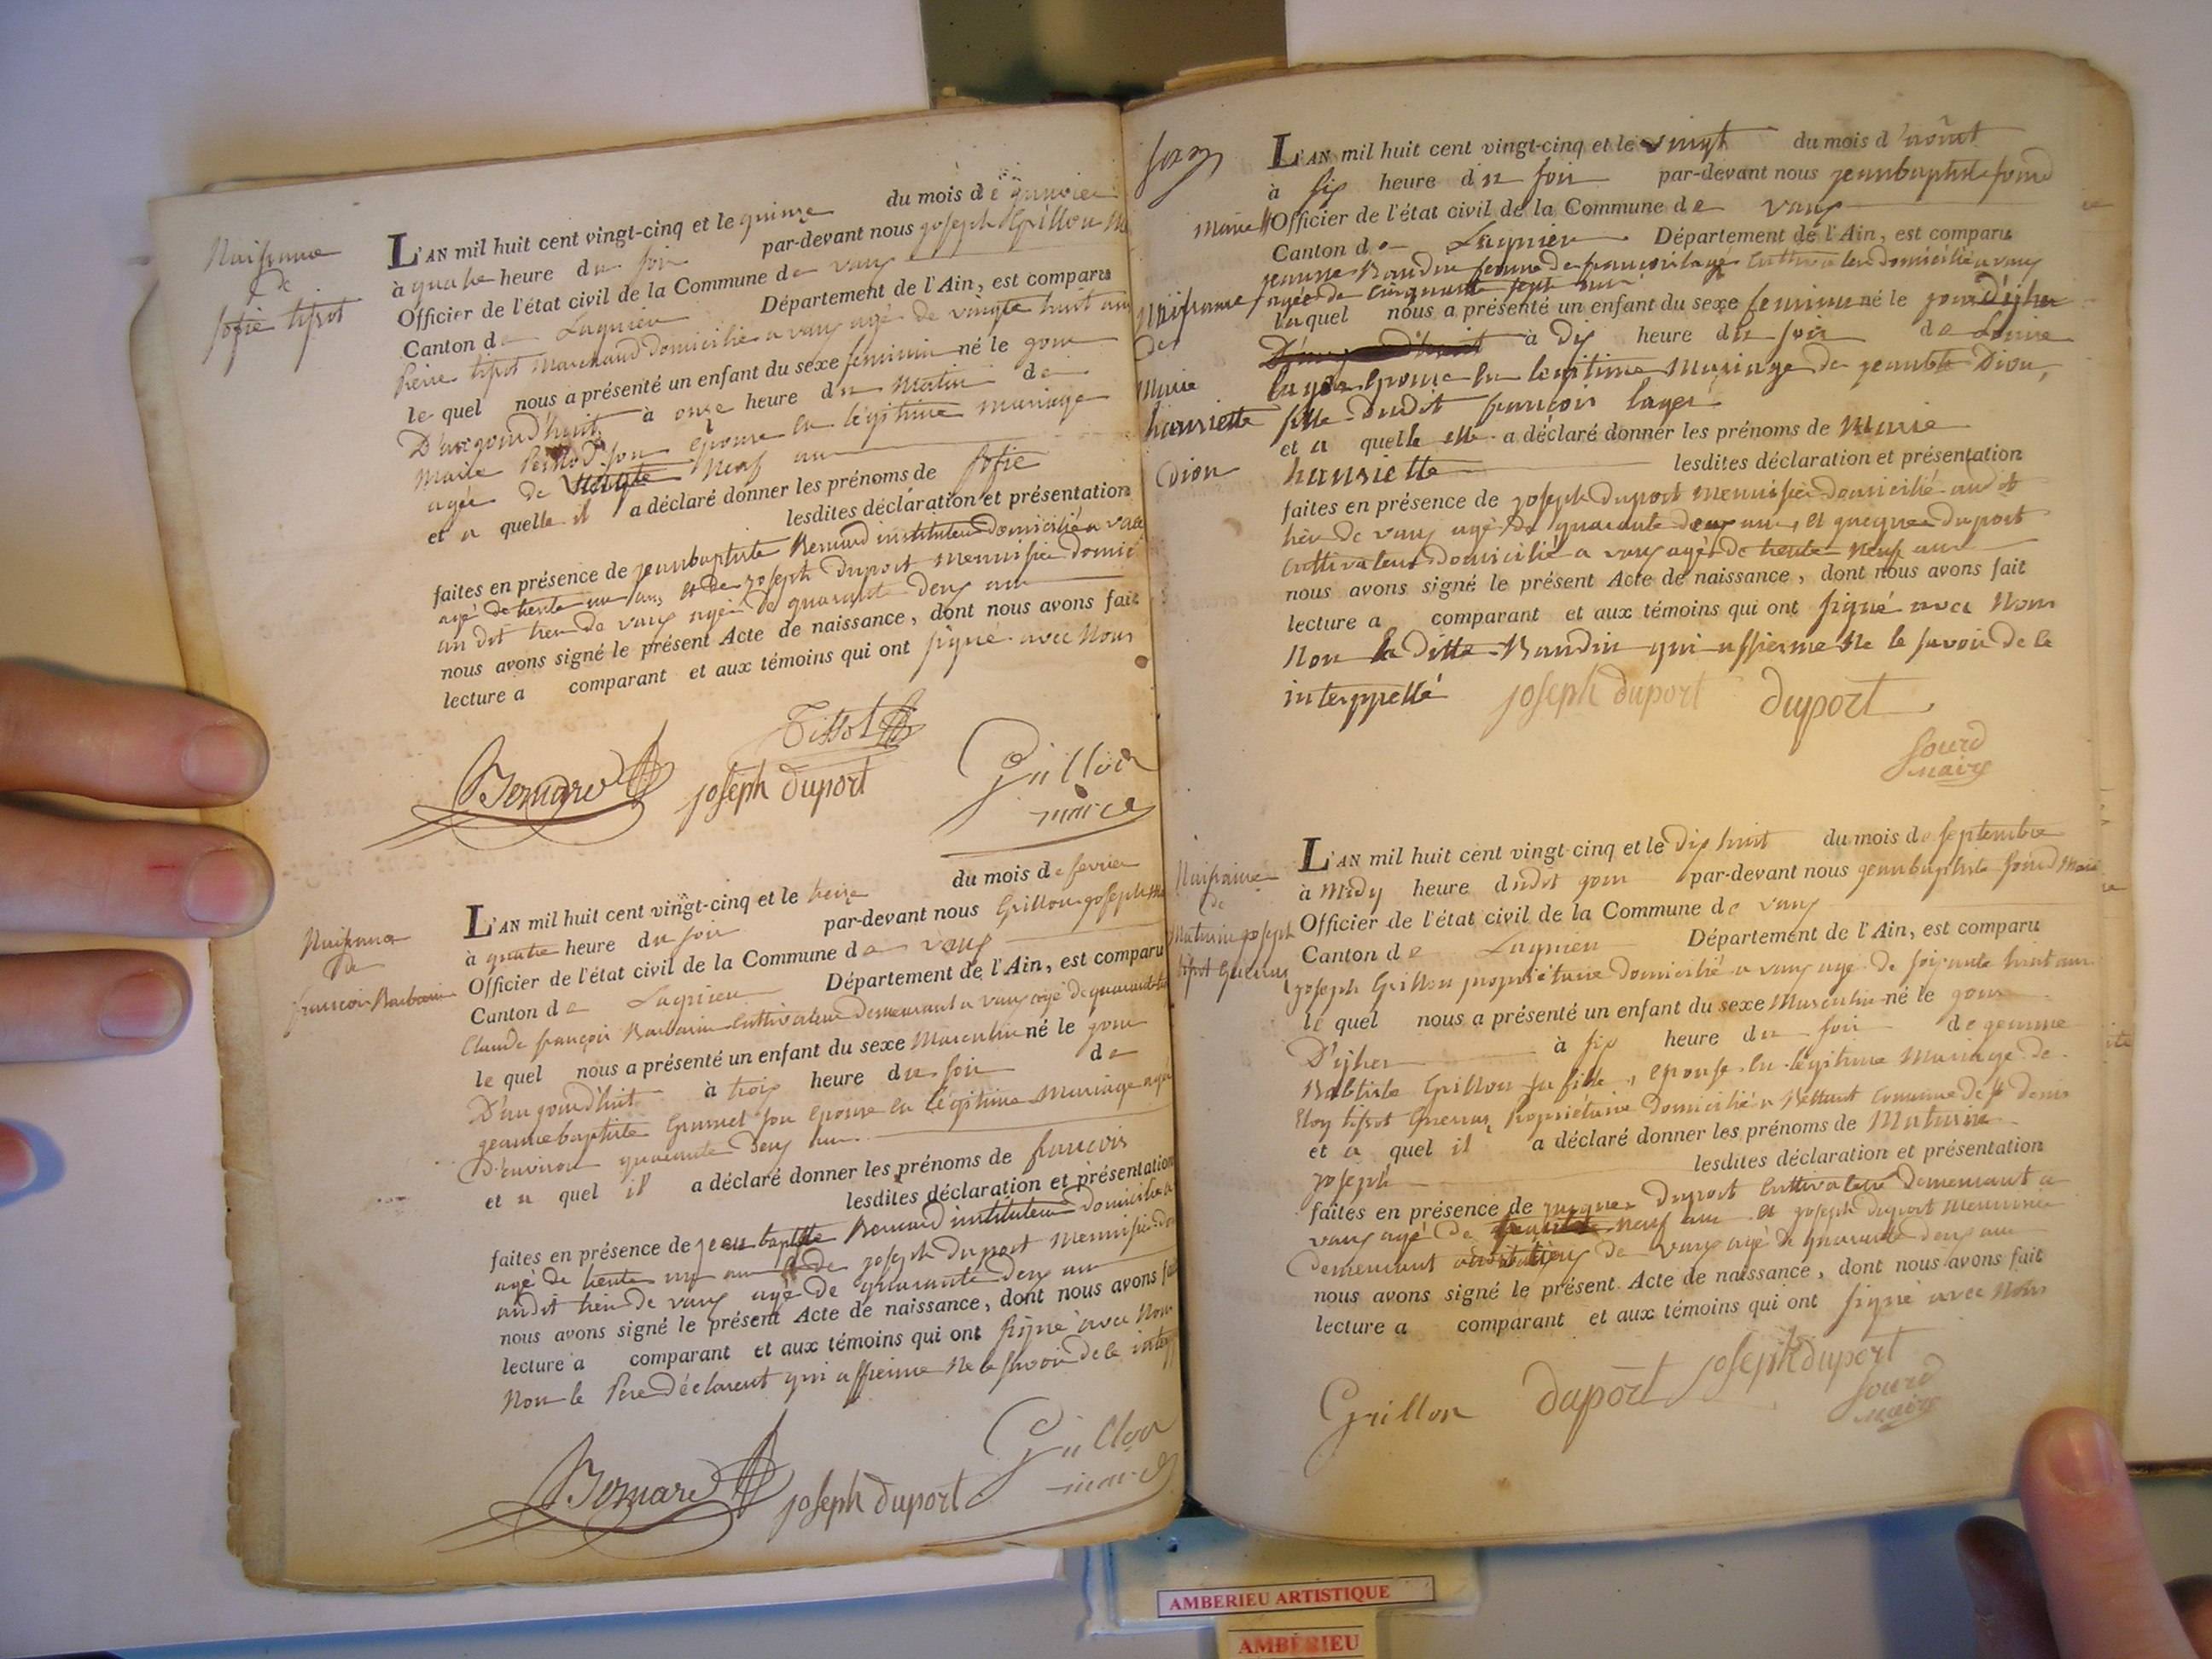 Naissance
de
sofie tissot
L'AN mil huit cent vingt-cinq et le quinze du mois de janvier
à quatre heure du soir par-devant nous joseph Grillon
Officier de l'état civil de la Commune de vaux
Canton de Lagnieu Département de l'Ain, est comparu
Pierre tissot Marchand domicilié a vaux agé de vingte huit ans
le quel nous a présenté un enfant du sexe feminin né le jour
D'aujourd'huit à onze heure du Matin de
Marie son epouse en légitime mariage
agée de vingte Neuf ans
et a quelle il a déclaré donner les prénoms de sofie
lesdites déclaration et présentation
faites en présence de jeanbaptiste Bernard instituteur domicilié a vaux
agé de trente un ans et de joseph Duport Menuisier domicé
au dit lieu de vaux agé de quarant deux ans
nous avons signé le présent Acte de naissance, dont nous avons fait
lecture a comparant et aux témoins qui ont signé avec Nous
Tissot
Bernard joseph duport Grillon
maire
Naissance
de
francois Barbarin
L'AN mil huit cent vingt-cinq et le treize du mois de fevrier
à quatre heure du soir par-devant nous Grillon joseph
Officier de l'état civil de la Commune de vaux
Canton de Lagnieu Département de l'Ain, est comparu
Claude françois Barbarin Cultivateur demeurant a vaux agé de
le quel nous a présenté un enfant du sexe Masculin né le jour
D'aujourd'huit à trois heure du soir de
jeannebaptiste son epouse en légitime Mariage agé
D'environ quarante deux ans
et a quel il a déclaré donner les prénoms de francois
lesdites déclaration et présentation
faites en présence de jean baptiste Bernard instituteur domicilié a
agé de trente un ans et de joseph duport Menuisier
audit lieu de vaux agé de quarante deux ans
nous avons signé le présent Acte de naissance, dont nous avons fait
lecture a comparant et aux témoins qui ont signé avec Nous
Non le Pere déclarent qui affirme Ne le savoir de ce
Bernard joseph duport Grillon
maire
Naissance
de
Marie
henriette
Dion
L'AN mil huit cent vingt-cinq et le vingt du mois d'août
à six heure du soir par-devant nous jeanbaptiste sourd
Maire Officier de l'état civil de la Commune de vaux
Canton de Lagnieu Département de l'Ain, est comparu
jeanne Baudin femme de francois lager Cultivateur domicilié a vaux
agée de Cinquante sept ans
laquel nous a présenté un enfant du sexe feminin né le jour D'yher
à dix heure du soir de Louise
lager Epouse en legitime Mariage de Dion,
fille dudit francois lager
et a quelle elle a déclaré donner les prénoms de Marie
henriette lesdites déclaration et présentation
faites en présence de joseph duport Menuisier domicilié audit
lieu de vaux agé de quarante deux ans, et jacques duport
Cultivateur domicilié a vaux agé de trente Neuf ans
nous avons signé le présent Acte de naissance, dont nous avons fait
lecture a comparant et aux témoins qui ont signé avec Nous
Non la ditte Baudin qui affirme Ne le savoir de ce
interppellé joseph duport duport
sourd
maire
Naissance
de
Maturin joseph
tissot Guerraz
L'AN mil huit cent vingt-cinq et le dix huit du mois de septembre
à Midy heure dudit jour par-devant nous jeanbaptiste sourd Maire
Officier de l'état civil de la Commune de vaux
Canton de Lagnieu Département de l'Ain, est comparu
joseph Grillon propriétaire domicilié a vaux agé de soixante huit ans
le quel nous a présenté un enfant du sexe Masculin né le jour
D'yher à six heure du soir de jeanne
Babtiste Grillon sa fille, epouse en légitime Mariage de
Eloy tissot Guerraz Propriétaire domicilié a Bettant Commune de St denis
et a quel il a déclaré donner les prénoms de Maturin
joseph lesdites déclaration et présentation
faites en présence de jacques Duport Cultivateur Demeurant a
vaux agé de neuf ans et joseph duport Menuisier
Demeurant de vaux agé de quarante deux ans
nous avons signé le présent Acte de naissance, dont nous avons fait
lecture a comparant et aux témoins qui ont signé avec Nous
Grillon duport joseph duport
sourd
maire
AMBERIEU ARTISTIQUE
AMBÉRIEU